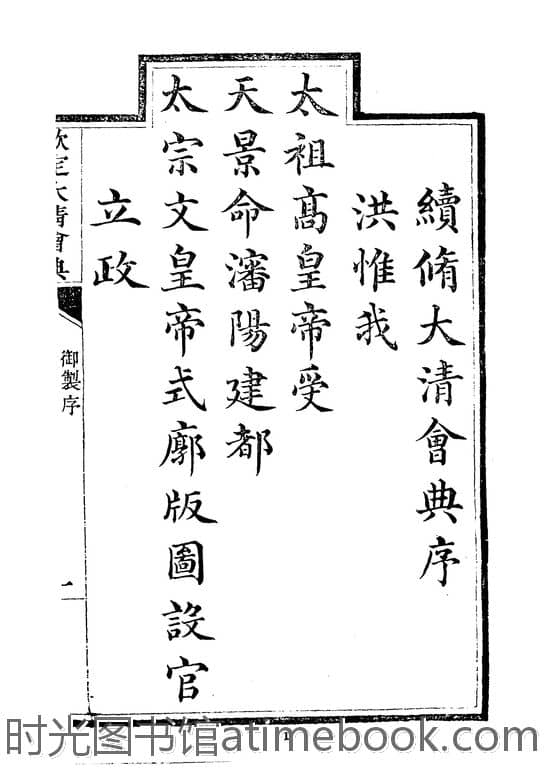 續脩大清會典序
洪惟我
太祖高皇帝受
天景命瀋陽建都
太宗文皇帝式廓版圖設官
立政
欽定大清會典
御製序
一
1
时光图书馆atimebook.com